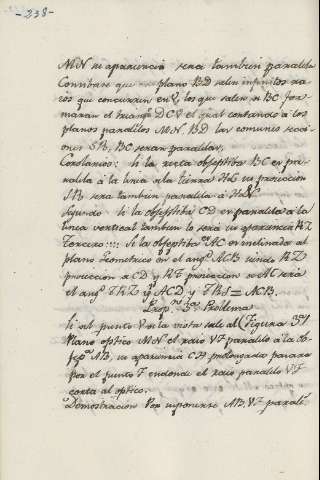 -238-
MN su apariencia sera tambien paralela
Concibase que plano BD salen infinitos ra
ios que concurren en V, los que salen de BC for
maran el triang.º DCV el qual cortando a los
planos paralelos MN BD las comunes secci
ones SR, BC seran paralelas,
Corolarios: Si la recta objeptiba BC es pa
ralela à la linea de la tierra HL su proieccion
SR sera tambien paralela à HL
Segundo Si la objeptiba CD es paralela à la
linea vertical tambien lo sera su aparencia RZ
Tercero:::: Si la objeptiba AC es inclinada al
plano Geometrico en el ang.º ACB siendo RZ
proieccion de CD y RT proieccion de AC será
el ang.º TRZ = ACD y TRS = ACB.
Prop.on 3.a Problema
Si del punto V de la vista sale al (Figura 3.a)
Plano optico MN el raio VF paralelo à la ob-
jep.a AB, su aparencia CA prolongada pasara
por el punto F en donde el raio paralelo VF
corta al optico.
Demostracion Por suponerse AB, VF paralel.